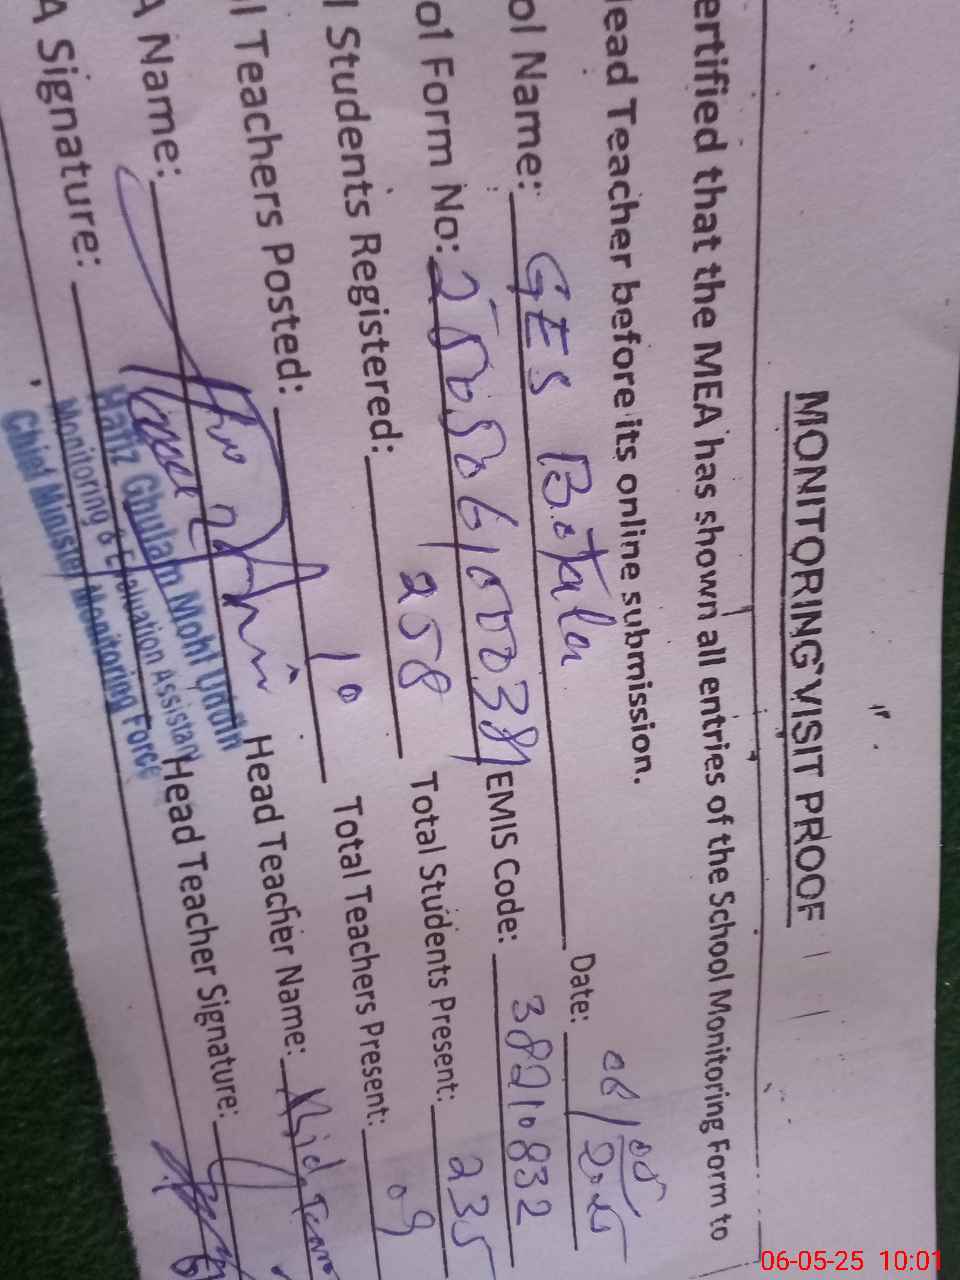 MONITORING VISIT PROOF
ertified that the MEA has shown all entries of the School Monitoring Form to
lead Teacher before its online submission.
ol Name: GES Botala Date: 06/05/2025
ol Form No: 25050610038 EMIS Code: 38210832
l Students Registered: 258 Total Students Present: 235
l Teachers Posted: 10 Total Teachers Present: 09
A Name: Head Teacher Name:
A Signature: Head Teacher Signature:
Hafiz Ghulam Mohi Uddin
Monitoring & Evaluation Assistant
Chief Minister Monitoring Force
06-05-25 10:01